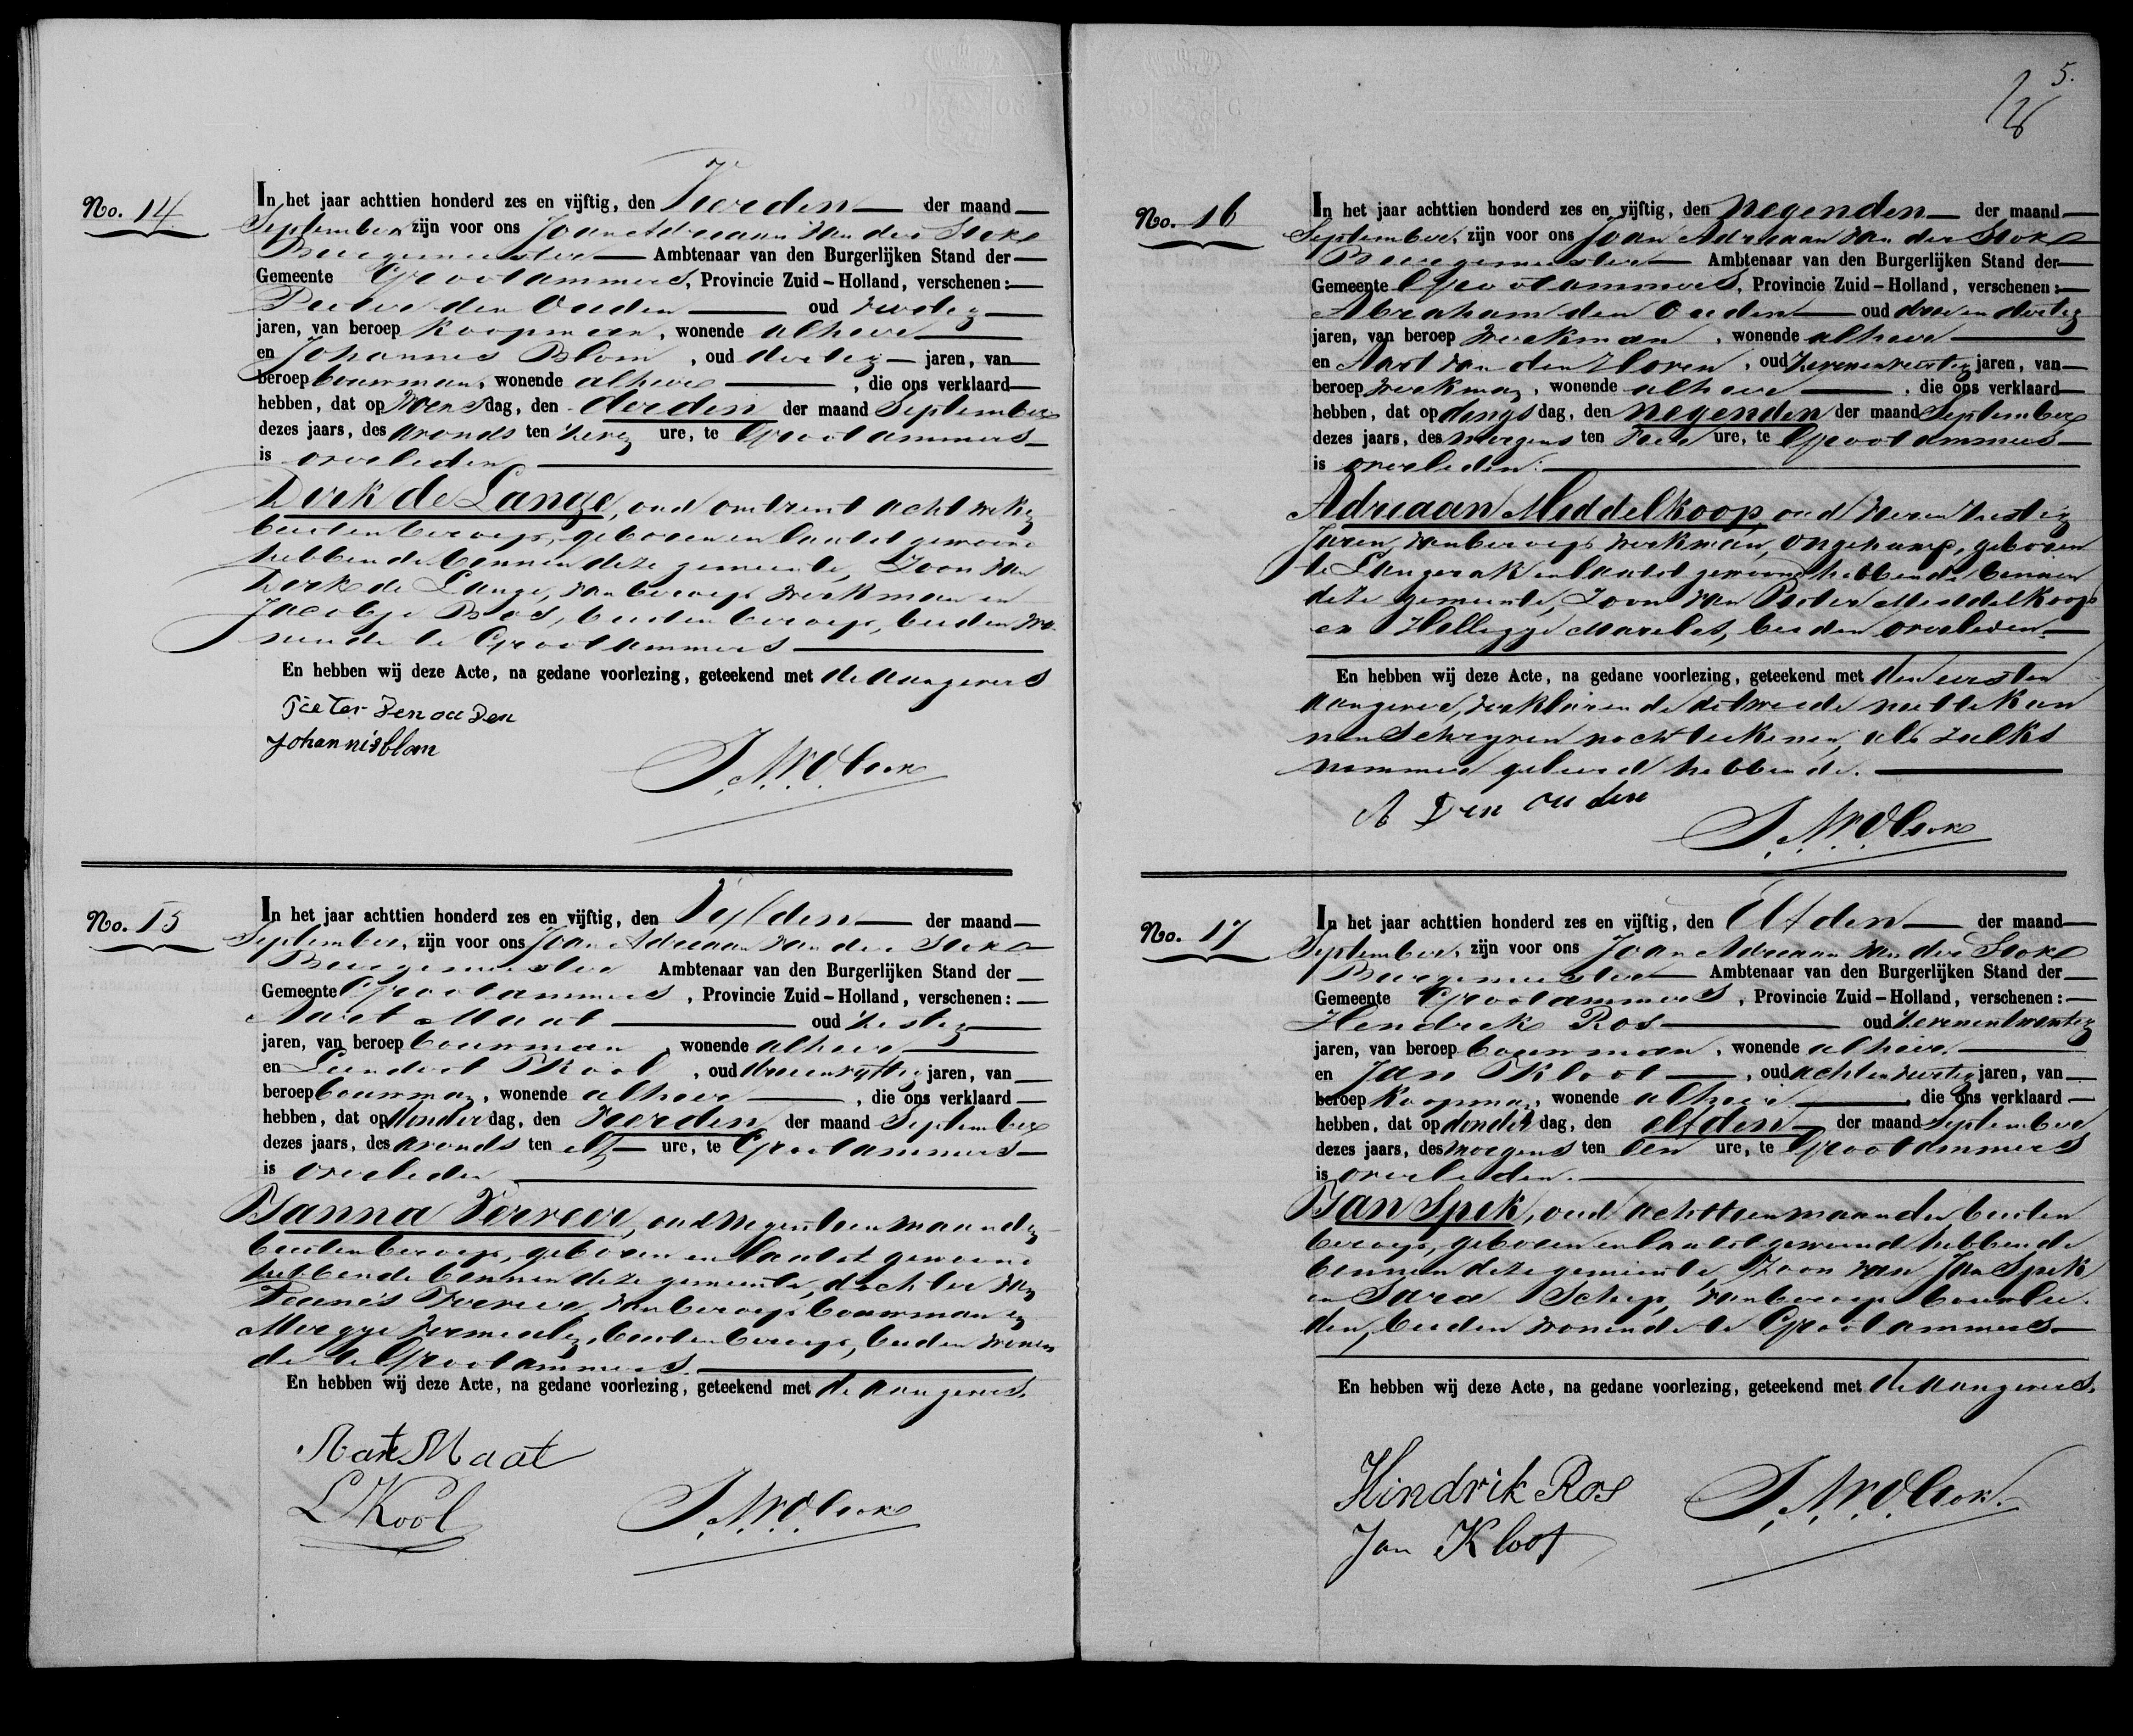 No. 14.
In het jaar achttien honderd zes en vijftig, den Vierden der maand
September zijn voor ons Joan Adriaan van der Stok
Burgemeester Ambtenaar van den Burgerlijken Stand der
Gemeente Grootammers, Provincie Zuid-Holland, verschenen:
Pieter den Ouden oud
jaren, van beroep koopman, wonende alhier
en Johannes Blom, oud dertig jaren, van
beroep bouwman, wonende alhier, die ons verklaard
hebben, dat op Woensdag, den derden der maand September
dezes jaars, des avonds ten zeven ure, te Grootammers
is overleden
Dirk de Lange, oud omtrent acht weken
buiten beroep, geboren en laatst gewoond
hebbende binnen deze gemeente, Zoon van
Dirk de Lange, van beroep werkman en
Jacobje Bos, buiten beroep, beiden wo-
nende te Grootammers
En hebben wij deze Acte, na gedane voorlezing, geteekend met de aangevers
Pieter Den ou Den
Johannis blom
No. 15
In het jaar achttien honderd zes en vijftig, den Vijfden der maand
September, zijn voor ons Joan Adriaan van der Stok
Burgemeester Ambtenaar van den Burgerlijken Stand der
Gemeente Grootammers, Provincie Zuid-Holland, verschenen:
Aart Maat oud zestig
jaren, van beroep bouwman, wonende alhier
en Leendert Kool, oud drieenvyftig jaren, van
beroep bouwman, wonende alhier, die ons verklaard
hebben, dat op Donderdag, den Vierden der maand September
dezes jaars, des avonds ten elf ure, te Grootammers
is overleden
Janna Verveer, oud negentien maanden
buiten beroep, geboren en laatst gewoond
hebbende binnen deze gemeente, dochter van
Teunis Verveer, van beroep bouwman en
Mergje Vermeulen, buiten beroep, beiden wonen
de te Grootammers.
En hebben wij deze Acte, na gedane voorlezing, geteekend met de aangevers.
Aart Maat
L Kool
5.
No. 16
In het jaar achttien honderd zes en vijftig, den negenden der maand
September, zijn voor ons Joan Adriaan van der Stok
Burgemeester Ambtenaar van den Burgerlijken Stand der
Gemeente Grootammers, Provincie Zuid-Holland, verschenen:
Abraham den Ouden oud drieendertig
jaren, van beroep werkman, wonende alhier
en Aart van den Horen, oud jaren, van
beroep werkman, wonende alhier, die ons verklaard
hebben, dat op dingsdag, den negenden der maand September
dezes jaars, des morgens ten ure, te Grootammers
is overleden:
Adriaan Middelkoop oud
Jaren, van beroep werkman, ongehuwd, geboren
te Langerak en laatst gewoond hebbende binnen
deze gemeente, Zoon van Pieter Middelkoop
en Hilligje, beiden overleden.
En hebben wij deze Acte, na gedane voorlezing, geteekend met den eersten
aangever, verklarende de tweede niet te kun
nen schryven noch teekenen, als zulks
nimmer geleerd hebbende.
A Den ouden
No. 17
In het jaar achttien honderd zes en vijftig, den Elfden der maand
September, zijn voor ons Joan Adriaan van der Stok
Burgemeester Ambtenaar van den Burgerlijken Stand der
Gemeente Grootammers, Provincie Zuid-Holland, verschenen:
Hendrik Ros oud zevenentwintig
jaren, van beroep bouwman, wonende alhier.
en Jan Kloot, oud jaren, van
beroep koopman, wonende alhier, die ons verklaard
hebben, dat op donderdag, den elfden der maand September
dezes jaars, des morgens ten een ure, te Grootammers
is overleden.
Jan Spek, oud achttien maanden, buiten
beroep, geboren en laatst gewoond hebbende
binnen deze gemeente, Zoon van Jan Spek
en Sara Schep, van beroep bouwlie-
den, beiden wonende te Grootammers
En hebben wij deze Acte, na gedane voorlezing, geteekend met de aangevers.
Hindrik Ros
Jan Kloot